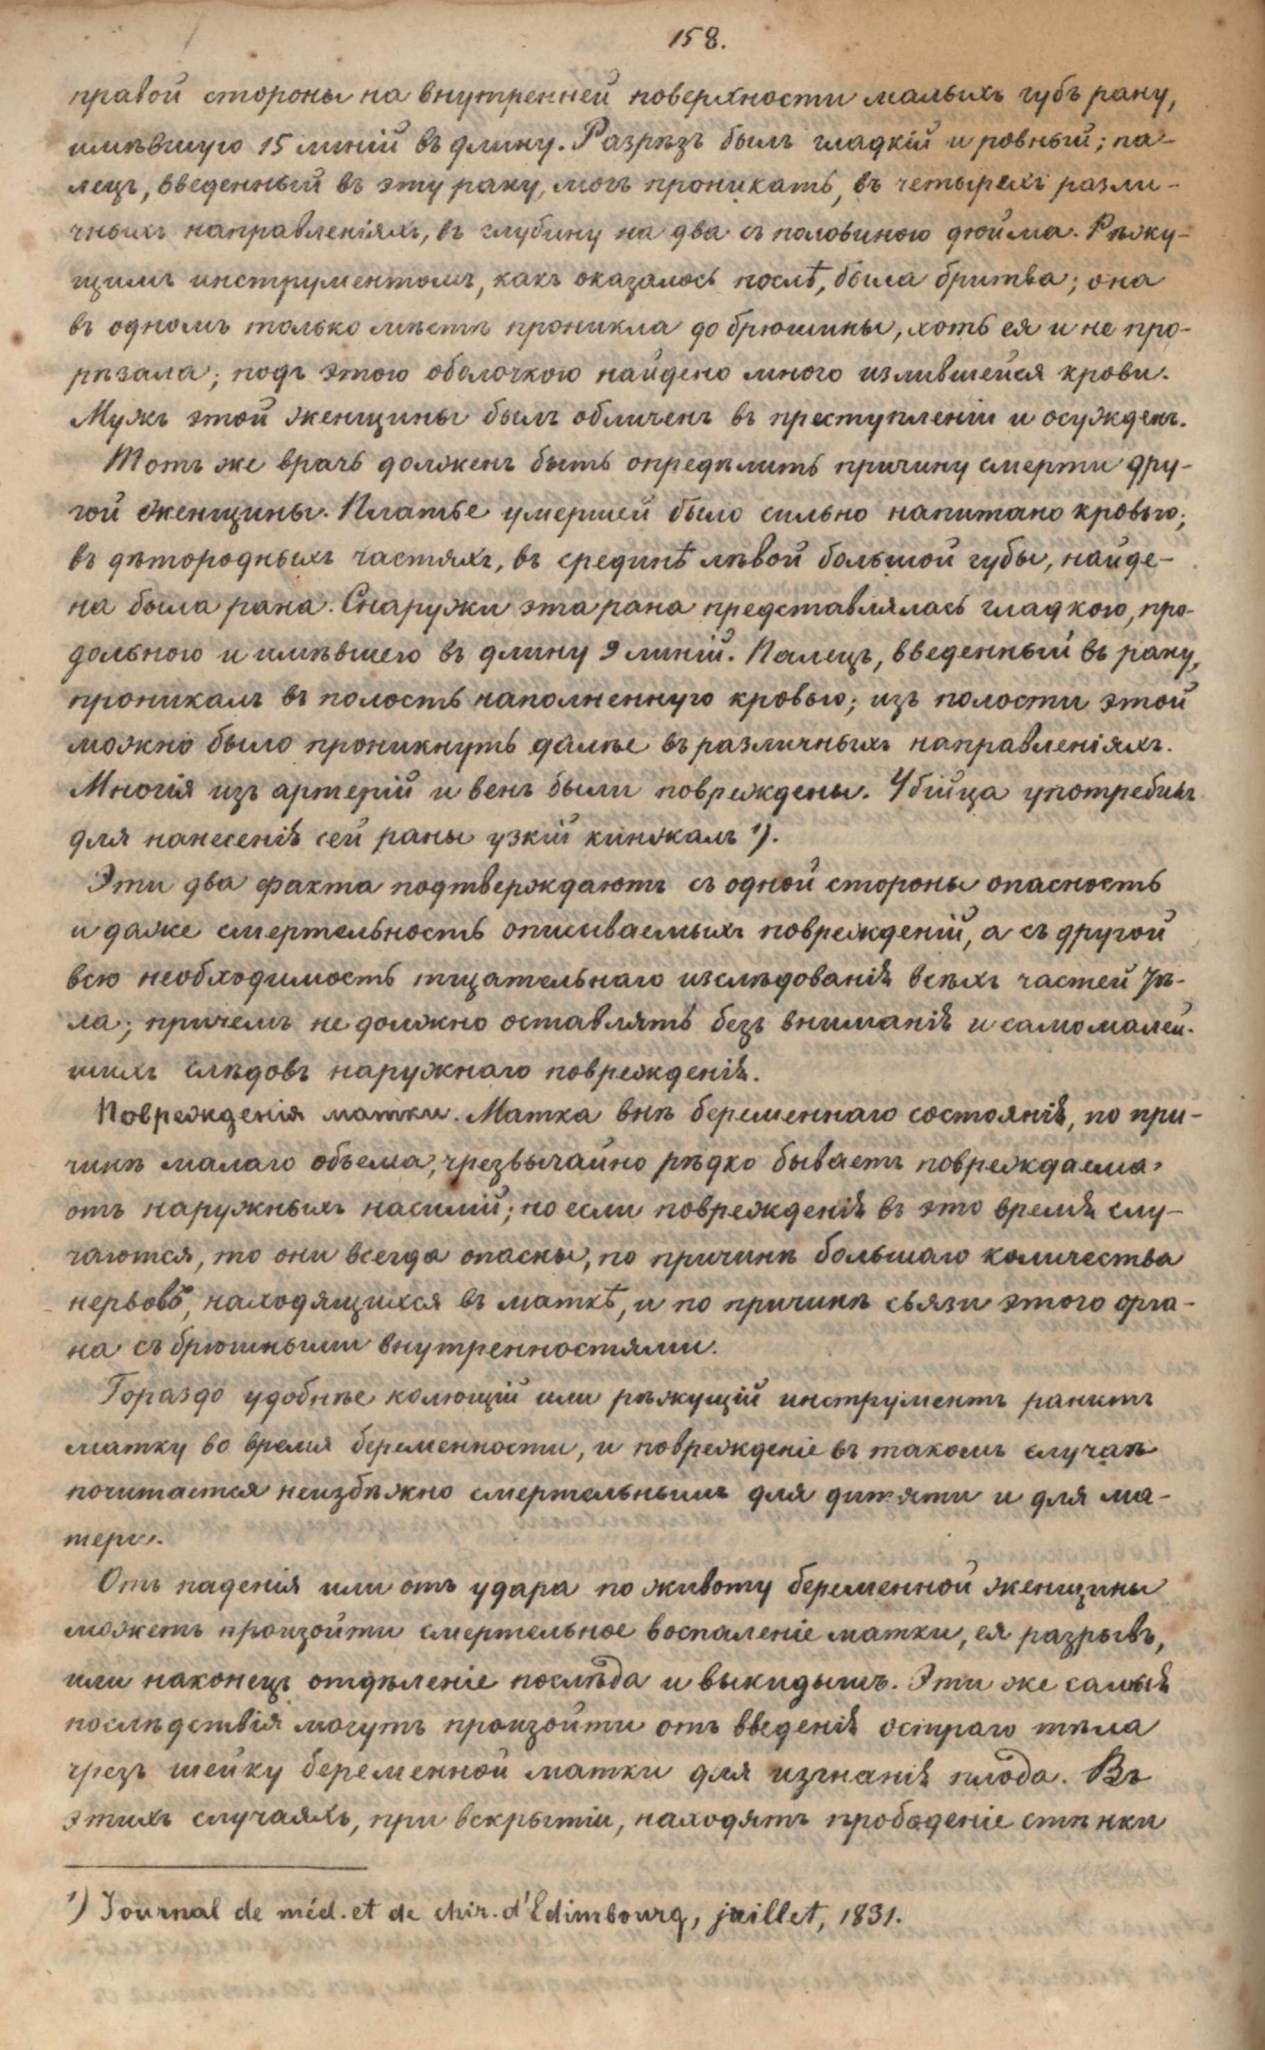 158.
правой стороны на внутренней поверхности малыхъ губъ рану,
имѣвшую 15 линій въ длину. Разрѣзъ былъ гладкій и ровный; па-
лецъ, введенный въ эту рану, могъ проникать, въ четырехъ разли-
чныхъ направленіяхъ, въ глубину на два съ половиною дюйма. Рѣжу-
щимъ инструментомъ, какъ оказалось послѣ, была бритва; она
въ одномъ только мѣстѣ проникла до брюшины, хоть ея и не про-
рѣзала; подъ этою оболочкою найдено много излившейся крови.
Мужъ этой женщины былъ обличенъ въ преступленіи и осужденъ.
Тотъ же врачь долженъ быть опредѣлить причину смерти дру-
гой женщины. Платье умершей было сильно напитано кровью;
въ дѣтородныхъ частяхъ, въ срединѣ лѣвой большой губы, найде-
на была рана. Снаружи эта рана представлялась гладкою, про-
дольною и имѣвшею въ длину 9 линій. Палецъ, введенный въ рану,
проникалъ въ полость наполненную кровью; изъ полости этой
можно было проникнуть далѣе въ различныхъ направленіяхъ.
Многія изъ артерій и венъ были повреждены. Убійца употребилъ
для нанесенія сей раны узкій кинжалъ ¹).
Эти два факта подтверждаютъ съ одной стороны опасность
и даже смертельность описываемыхъ поврежденій, а съ другой
всю необходимость тщательнаго изслѣдованія всѣхъ частей тѣ-
ла; причемъ не должно оставлять безъ вниманія и самомалей-
шихъ слѣдовъ наружнаго поврежденія.
Поврежденія матки. Матка внѣ беременнаго состоянія, по при-
чинѣ малаго объема, чрезвычайно рѣдко бываетъ повреждаема
отъ наружныхъ насилій; но если поврежденія въ это время слу-
чаются, то они всегда опасны, по причинѣ большаго количества
нервовъ, находящихся въ маткѣ, и по причинѣ связи этого орга-
на съ брюшными внутренностями.
Гораздо удобнѣе колющій или рѣжущій инструментъ ранитъ
матку во время беременности, и поврежденіе въ такомъ случаѣ
почитается неизбѣжно смертельнымъ для дитяти и для ма-
тери.
Отъ паденія или отъ удара по животу беременной женщины
можетъ произойти смертельное воспаленіе матки, ея разрывъ,
или наконецъ отдѣленіе послѣда и выкидышъ. Эти же самыя
послѣдствія могутъ произойти отъ введенія остраго тѣла
чрезъ шейку беременной матки для изгнанія плода. Въ
этихъ случаяхъ, при вскрытіи, находятъ прободеніе стѣнки
¹) Journal de méd. et de chir. d'Edimbourg, juillet, 1831.